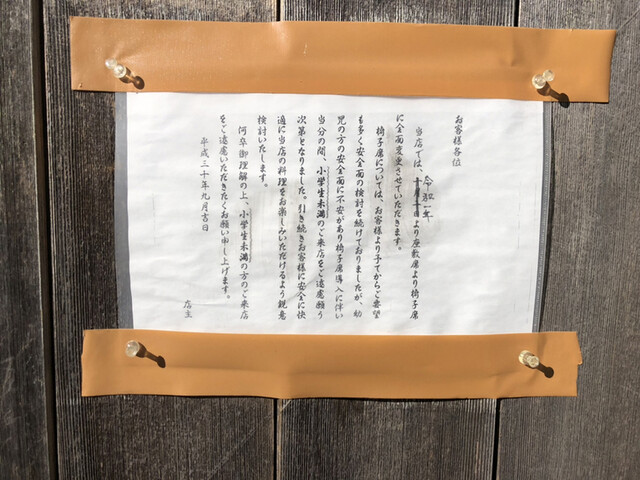 お客様各位
当店では、令和一年
十月十日より座敷席より椅子席
に全面変更させていただきます。
椅子席については、お客様より予てからご要望
も多く安全面の検討を続けておりましたが、幼
児の方の安全面に不安があり椅子席導入に伴い
当分の間、小学生未満のご来店をご遠慮願う
次第となりました。引き続きお客様に安全に快
適に当店の料理をお楽しみいただけるよう鋭意
検討いたします。
何卒御理解の上、小学生未満の方のご来店
をご遠慮いただきたくお願い申し上げます。
平成三十年九月吉日
店主